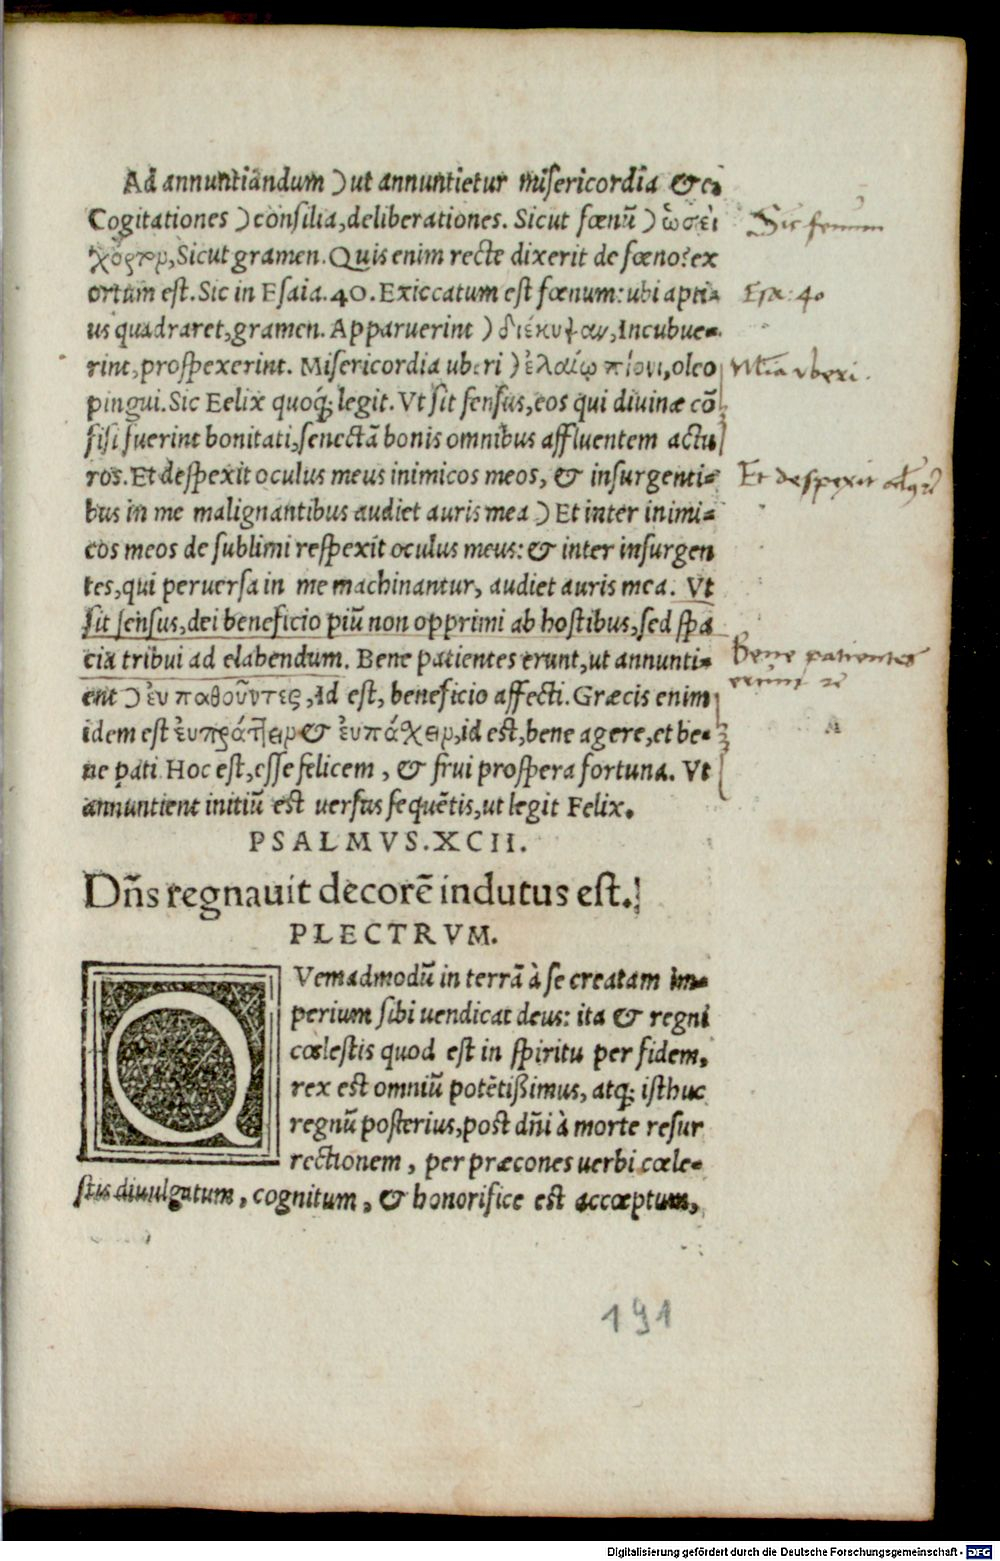 Ad annuntiandum ) ut annuntietur misericordia & c.
Cogitationes ) consilia, deliberationes. Sicut fœnũ ) ὡσεὶ
χόρτου, Sicut gramen. Quis enim recte dixerit de fœno: ex
ortum est. Sic in Esaia. 40. Exiccatum est fœnum: ubi apti-
us quadraret, gramen. Apparuerint ) διέκυψαν, Incubue-
rint, prospexerint. Misericordia uberi ) ἐλαίῳ πίονι, oleo
pingui. Sic Felix quoq; legit. Vt sit sensus, eos qui diuinæ cõ
fisi fuerint bonitati, senectã bonis omnibus affluentem actu
ros. Et despexit oculus meus inimicos meos, & insurgenti-
bus in me malignantibus audiet auris mea ) Et inter inimi-
cos meos de sublimi respexit oculus meus: & inter insurgen
tes, qui peruersa in me machinantur, audiet auris mea. Vt
sit sensus, dei beneficio piũ non opprimi ab hostibus, sed spa
cia tribui ad elabendum. Bene patientes erunt, ut annunti-
ent ) ἐυπαθοῦντες, Id est, beneficio affecti. Græcis enim
idem est ἐυπράττειν & ἐυπάχειν, id est, bene agere, et be-
ne pati Hoc est, esse felicem, & frui prospera fortuna. Vt
annuntient initiũ est uersus sequẽtis, ut legit Felix.
PSALMVS. XCII.
Dñs regnauit decorẽ indutus est.
PLECTRVM.
QVemadmodũ in terrã à se creatam im-
perium sibi uendicat deus: ita & regni
cœlestis quod est in spiritu per fidem,
rex est omniũ potẽtißimus, atq; isthuc
regnũ posterius, post dñi à morte resur
rectionem, per præcones uerbi cœle-
stis diuulgatum, cognitum, & honorifice est accœptum,
Sic fenum
Esa: 40
Mia vberi.
Et despexit
Bene patientes
erunt
191
Digitalisierung gefördert durch die Deutsche Forschungsgemeinschaft - DFG